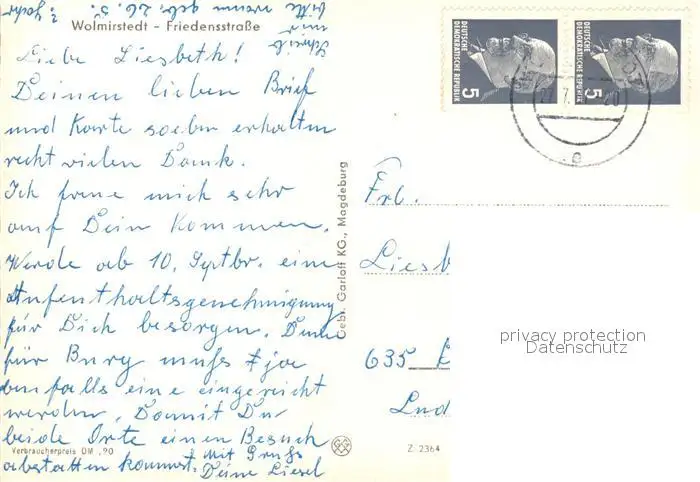 Wolmirstedt - Friedensstraße
Schreib
mir
bitte wann geb. 26.5.
Liebe Liesbeth!
Deinen lieben Brief
und Karte soeben erhalten
recht vielen Dank.
Ich freue mich sehr
auf Dein Kommen.
Werde ab 10. Septbr. eine
Aufenthaltsgenehmigung
für Dich besorgen. Denn
für Burg muss ja
benfalls eine eingereicht
werden. Damit Du
beide Orte einen Besuch
abstatten kannst. Mit Gruß
Deine Liesel
Verbraucherpreis DM ,90
Gebr. Garloff KG., Magdeburg
Z 2364
DEUTSCHE
DEMOKRATISCHE REPUBLIK
5
DEUTSCHE
DEMOKRATISCHE REPUBLIK
5
Frl.
Liesb
635
Lud
privacy protection
Datenschutz